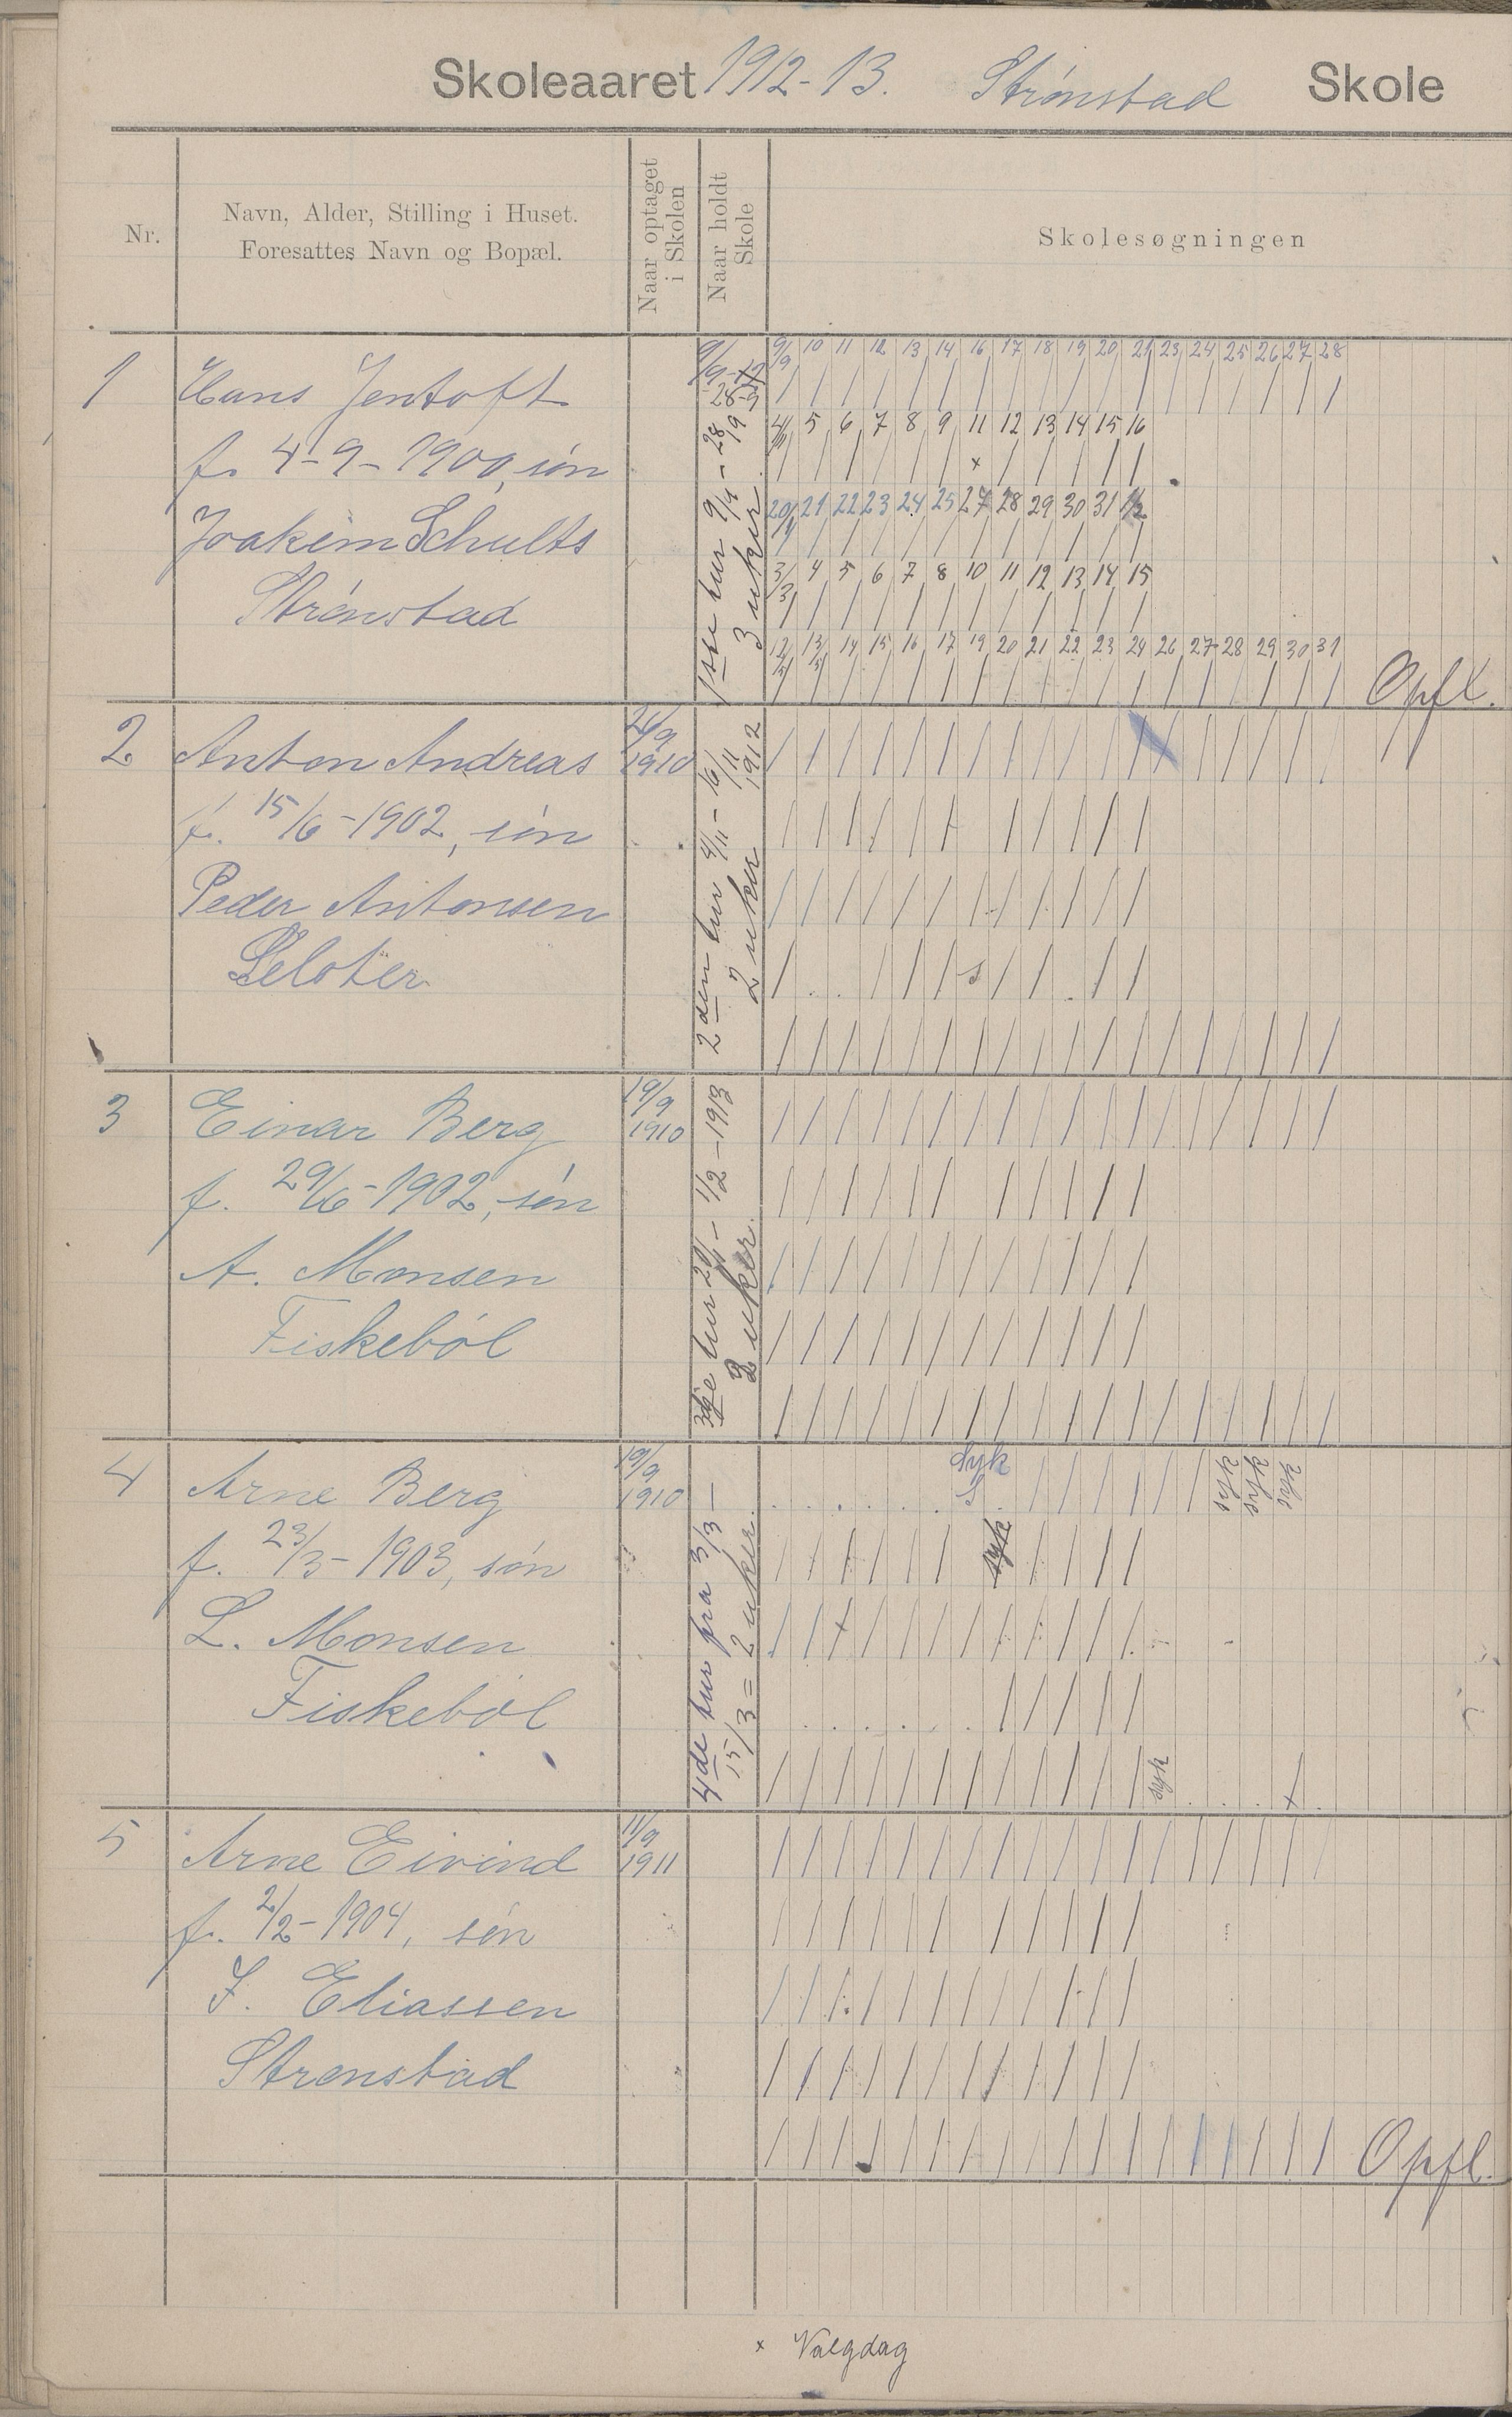 Skoleaaret 1912-13. Strønstad Skole
Nr.
Navn, Alder, Stilling i Huset.
Foresattes Navn og Bopæl.
Naar optaget
i Skolen
Naar holdt
Skole
Skolesøgningen
9/9 10 11 12 13 14 16 17 18 19 20 21 23 24 25 26 27 28
1 Hans Jentoft
4/11 5 6 7 8 9 11 12 13 14 15 16
f. 4-9-1900, søn
x
20/1 21 22 23 24 25 27 28 29 30 31 1/2
Joakim Schults
3/3 4 5 6 7 8 10 11 12 13 14 15
Strønstad
12/5 13/5 14 15 16 17 19 20 21 22 23 24 26 27 28 29 30 31
Opfl.
1ste tur 9/9 - 28/9
3 uker
2 Anton Andreas
1910
f. 15/6-1902, søn
Peder Antonsen
Seloter
s
2den tur 4/11 - 16/11 1912
2 uker
3 Einar Berg
19/9
1910
f. 29/6-1902, søn
A. Monsen
Fiskebøl
3dje tur 20/1 - 1/2 - 1913
2 uker.
4 Arne Berg
19/9
1910
Syk
S
syk syk syk
f. 23/3-1903, søn
syk
L. Monsen
Fiskebøl
syk
4de tur fra 3/3 -
15/3 = 2 uker.
5 Arne Eivind
11/9
1911
f. 2/2-1904, søn
J. Eliassen
Strønstad
Opfl.
x Valgdag